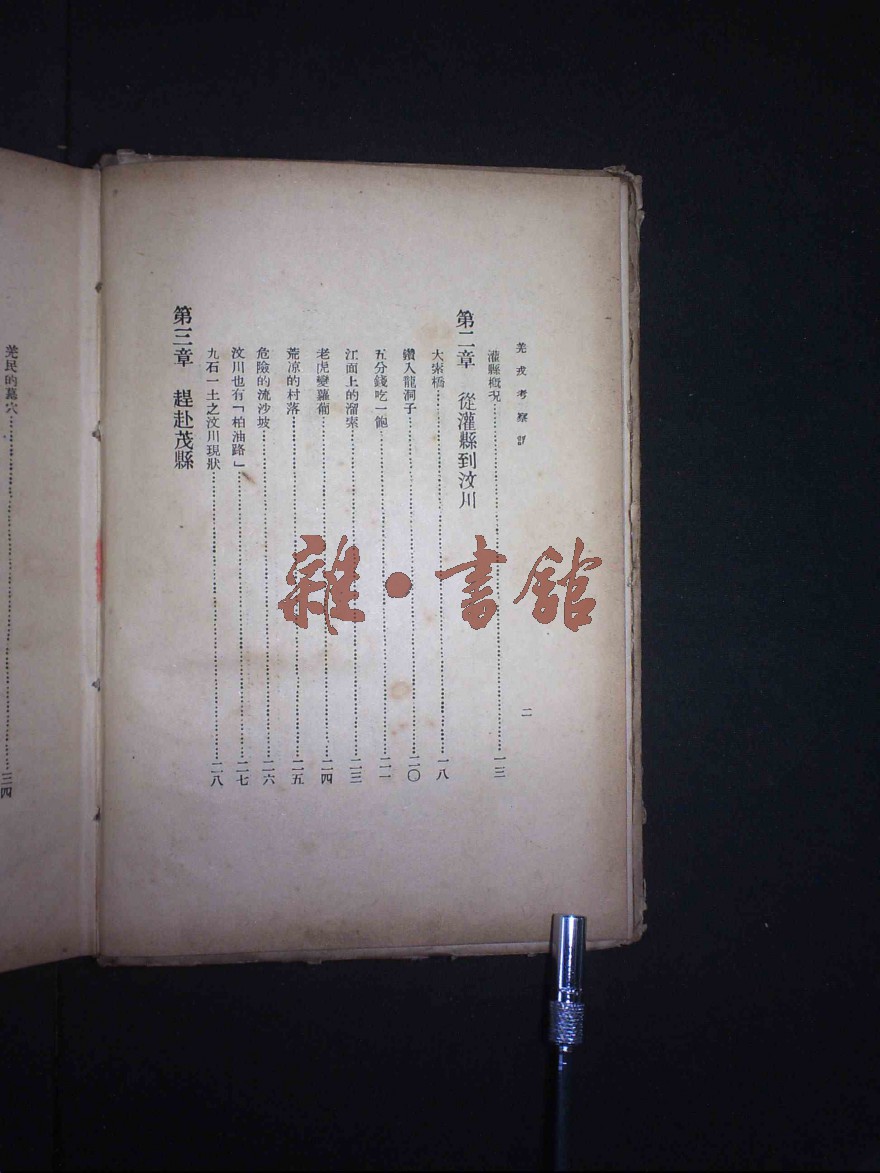 羌戎考察記
二
灌縣概況……一三
第二章 從灌縣到汶川
大索橋……一八
鑽入龍洞子……二〇
五分錢吃一飽……二一
江面上的溜索……二三
老虎變蘿蔔……二四
荒凉的村落……二五
危險的流沙坡……二六
汶川也有「柏油路」……二七
九石一土之汶川現狀……二八
第三章 趕赴茂縣
羌民的墓穴……三四
雜·書館